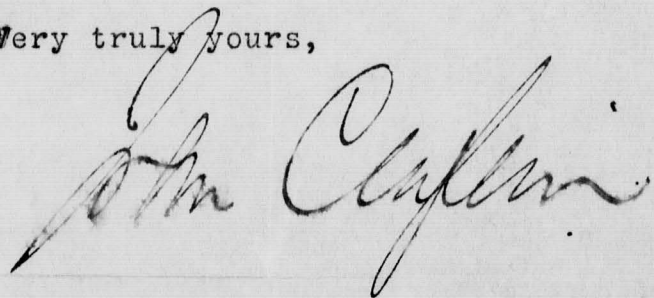 Very truly yours,
John Claflin